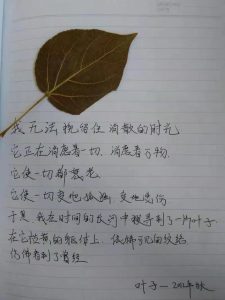 我无法挽留住消散的时光
它正在消愿着一切，消愿着万物.
它使一切都
它使一切变地孤独，变地忧伤
于是 我在时间的长河中搜寻到了一片叶子
在它枯黄的躯体上 依稀可见的纹络
仿佛看到了曾经
叶子—